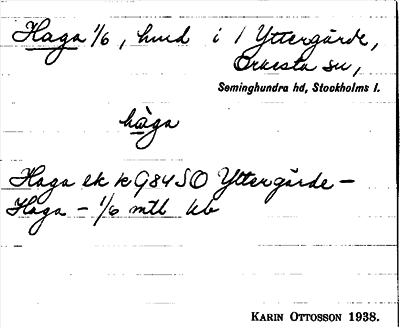 Haga 1/6, hmd i 1 Yttergärde,
Orkesta sn,
Seminghundra hd, Stockholms l.
hȧga
Haga ek k G84SO Yttergärde –
Haga – 1/6 mtl kb
KARIN OTTOSSON 1938.